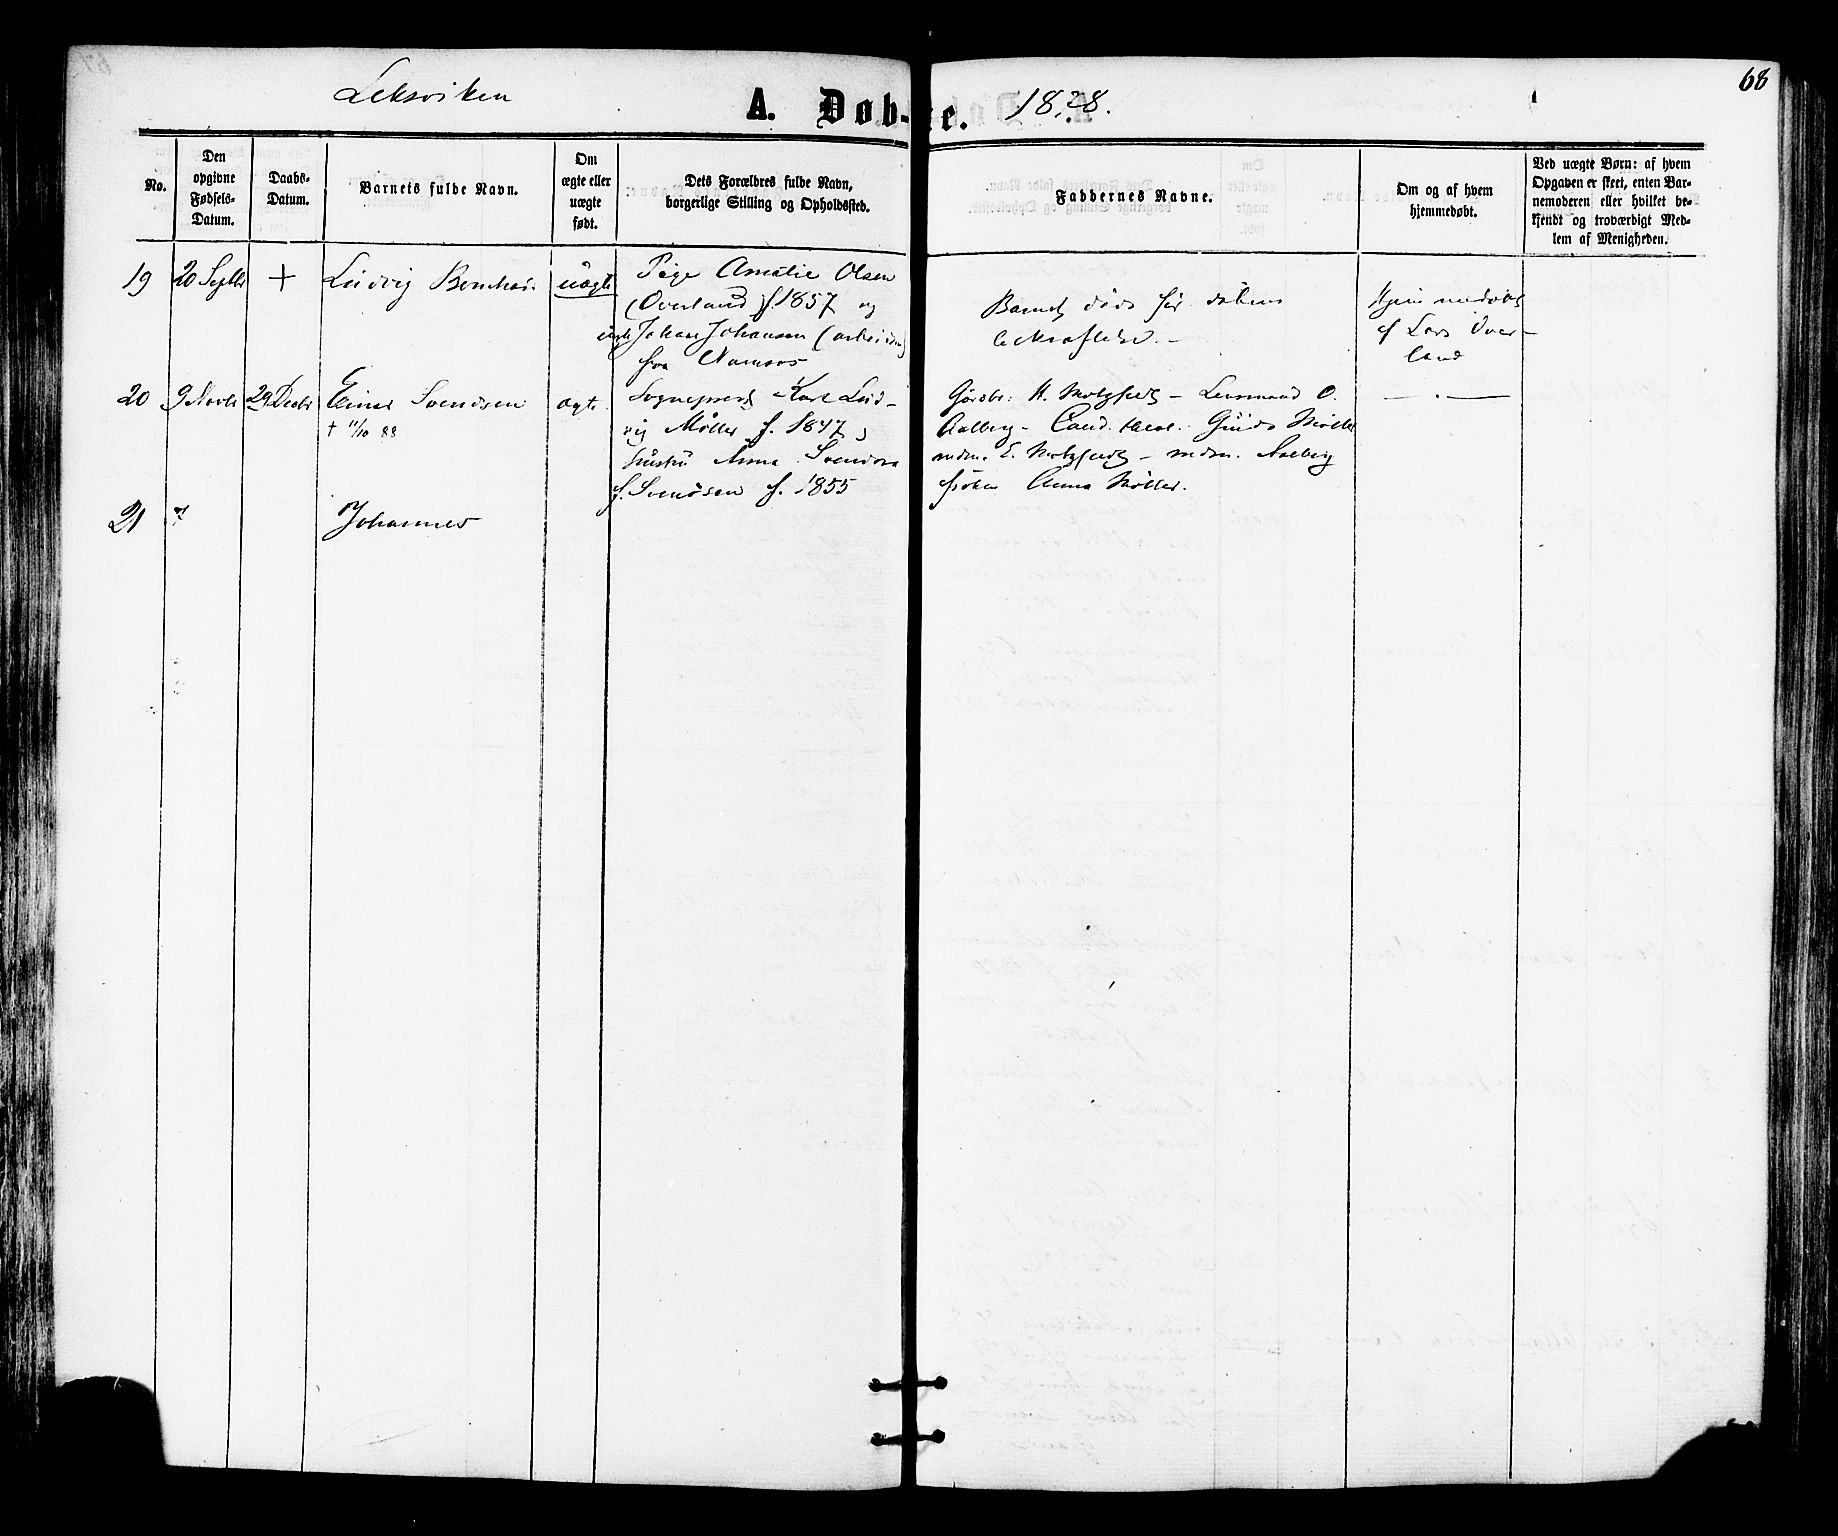 68
Leksviken
A. Døb-te. 1828.
No.
Den opgivne Fødsels-Datum.
Daabs-Datum.
Barnets fulde Navn.
Om ægte eller uægte født.
Dets Forældres fulde Navn, borgerlige Stilling og Opholdssted.
Faddernes Navne.
Om og af hvem hjemmedøbt.
Ved uægte Børn: af hvem Opgaven er skeet, enten Barnemoderen eller hvilket bekjendt og troværdigt Medlem af Menigheden.
19 20 Septbr + Ludvig uægte Pige Amalie Olsen
Overland f. 1857 og
Johan Johansen (arbeider)
fra Namsos
Barnet døde før dåbens
bekræftelse.
Hjemmedøbt
af Lars Over-
land
20 9 Novbr 29 Decbr Einar Svendsen ægte Sogneprest Karl Lud-
† 11/10 88
vig Møller f. 1847 og
hustru Anna Svendora
f. Svendsen f. 1855
H. Motzfeldt - Lensmand O.
Aalberg - Cand. theol. Guido Møller
E. Motzfeldt - Aalberg
frøken Anna Møller.
21 Johannes